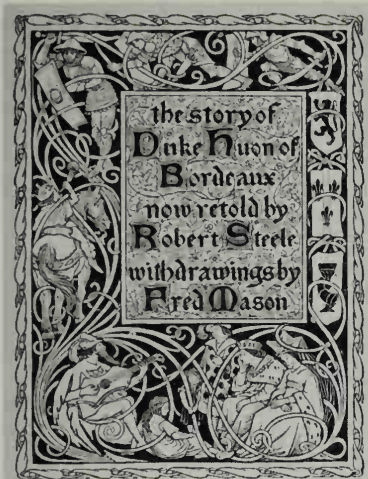 the story of
Duke Huon of
Bordeaux
now retold by
Robert Steele
with drawings by
Fred Mason